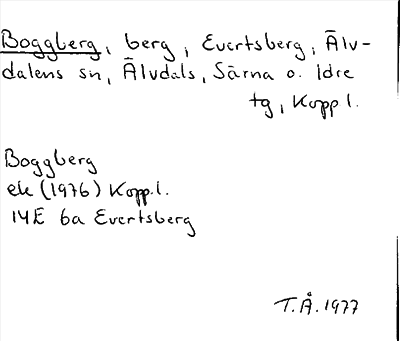 Boggberg, berg, Evertsberg, Älv-
dalens sn, Älvdals, Särna o. Idre
tg, Kopp l.
Boggberg
ek (1976) Kopp.l.
14E 6a Evertsberg
T.Å. 1977